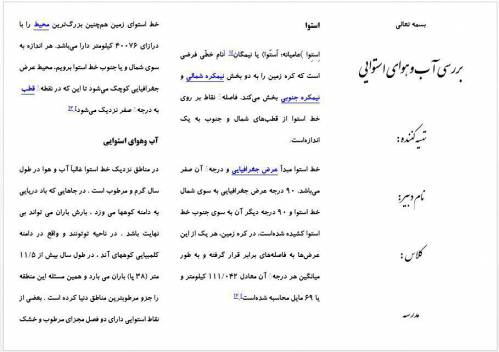 بسمه تعالی
بررسی آب و هوای استوایی
تهیه کننده:
نام دبیر:
کلاس:
مدرسه
استوا
اِستِوا )عامیانه: اُستُوا) یا نیمگان[۱] نام خطّی فرضی
است که کره زمین را به دو بخش نیمکره شمالی و
نیمکره جنوبی بخش می‌کند. فاصلهٔ نقاط بر روی
خط استوا از قطب‌های شمال و جنوب به یک
اندازه‌است.
خط استوا مبدأ عرض جغرافیایی و درجهٔ آن صفر
می‌باشد. ۹۰ درجه عرض جغرافیایی به سوی شمال
خط استوا و ۹۰ درجه دیگر آن به سوی جنوب خط
استوا کشیده شده‌است، در کره زمین، هر یک از این
عرض‌ها به فاصله‌های برابر قرار گرفته و به طور
میانگین هر درجهٔ آن معادل ۱۱۱/۰۴۲ کیلومتر و
یا ۶۹ مایل محاسبه شده‌است[۲]
خط استوای زمین هم‌چنین بزرگ‌ترین محیط را با
درازای ۴۰۰۷۶ کیلومتر دارا می‌باشد. هر اندازه به
سوی شمال و یا جنوب خط استوا برویم، محیط عرض
جغرافیایی کوچک می‌شود تا این که در نقطهٔ قطب
به درجهٔ صفر نزدیک می‌شود.[۳]
آب وهوای استوایی
در مناطق نزدیک خط استوا غالباً آب و هوا در طول
سال گرم و مرطوب است . در جاهایی که باد دریایی
به دامنه کوهها می وزد ، بارش باران می تواند بی
نهایت باشد . در ناحیه توتونندو واقع در دامنه
کلمبیایی کوههای آند ، در طول سال بیش از ۱۱/۵
متر (۳۸ پا) باران می بارد و همین مسئله این منطقه
را جزو مرطوبترین مناطق دنیا کرده است . بعضی از
نقاط استوایی دارای دو فصل مجزای مرطوب و خشک